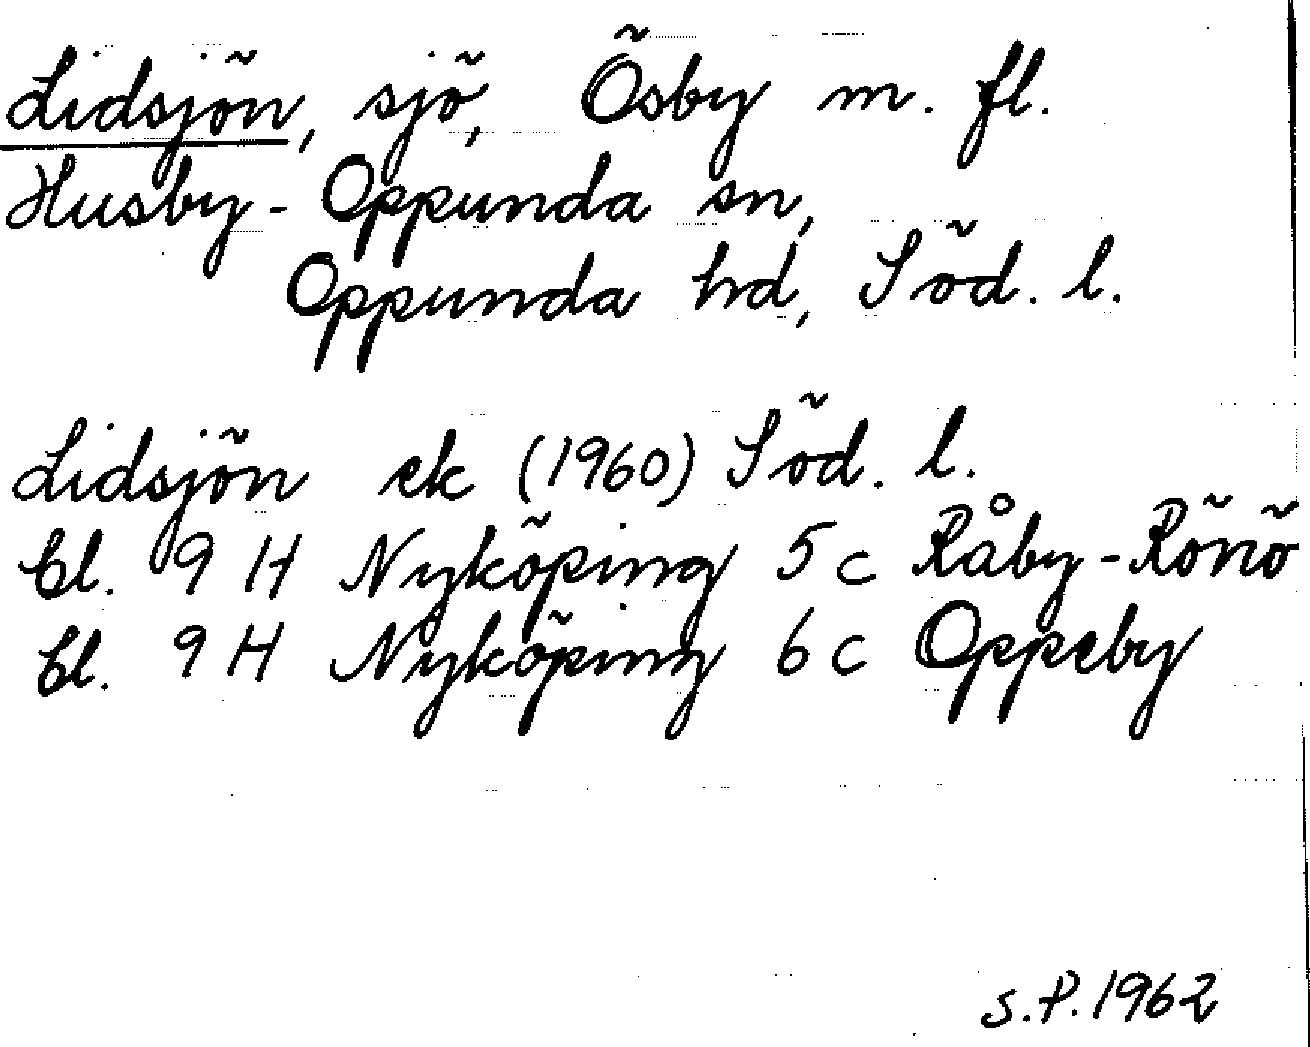 Lidsjön, sjö, Ösby m. fl.
Husby-Oppunda sn,
Oppunda hd, Söd. l.
Lidsjön ek (1960) Söd. l.
Bl. 9 H Nyköping 5 c Råby-Rönö
Bl. 9 H Nyköping 6 c Oppeby
S.P. 1962